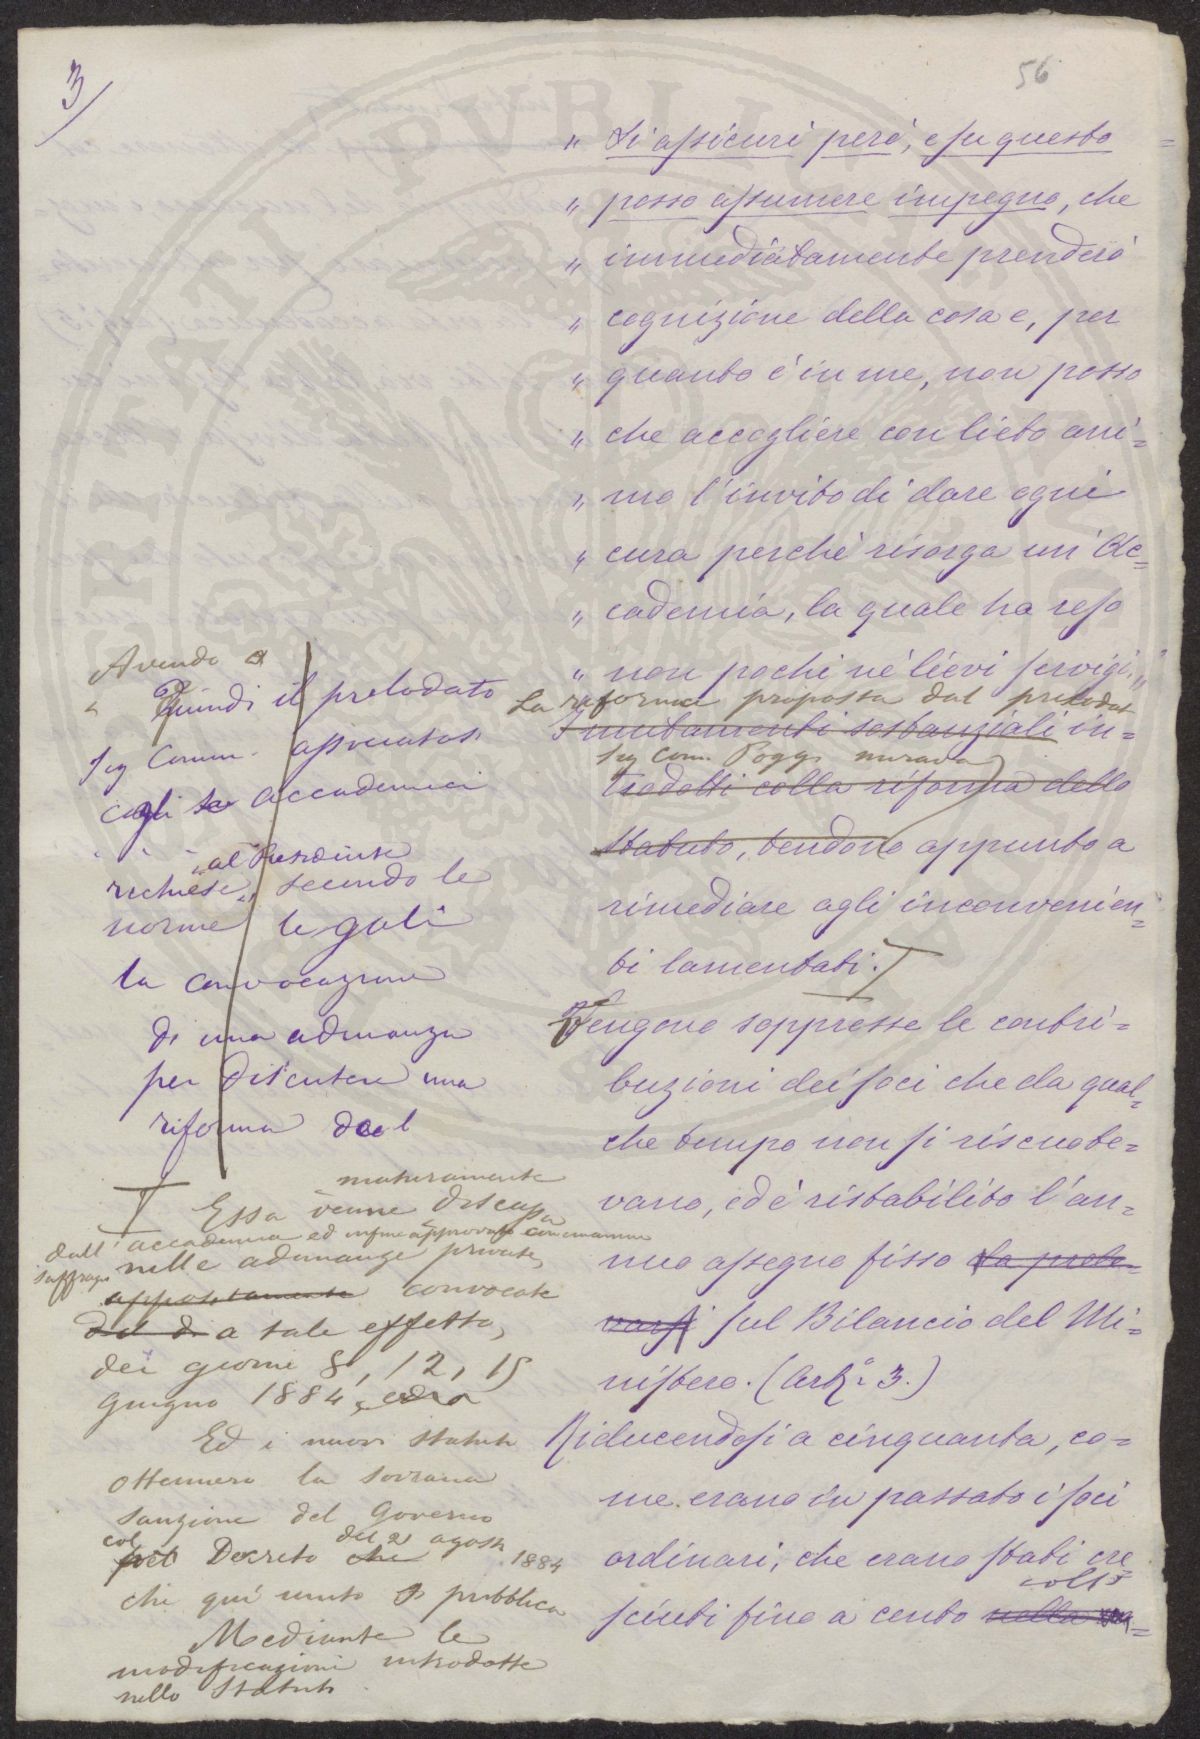 3/
56
" Si assicuri però, e su questo
" posso assumere impegno, che
" immediatamente prenderò
" cognizione della cosa e, per
" quanto è in me, non posso
" che accogliere con lieto ani=
" mo l'invito di dare ogni
" cura perchè risorga un' Ac=
" cademia, la quale ha reso
" non pochi nè lievi servigi. "
La riforma proposta dal prelodat
I mutamenti sostanziali in=
Sig Com. Poggi mirava
trodotti colla riforma dello
statuto, tendono appunto a
rimediare agli inconvenien=
ti lamentati.
Vengono soppresse le contri=
buzioni dei soci che da qual=
che tempo non si riscuote=
vano, ed è ristabilito l'an=
nuo assegno fisso da prele=
varsi sul Bilancio del Mi=
nistero. (Art. 3.)
Riducendosi a cinquanta, co=
me erano in passato i soci
ordinari, che erano stati cre
colle
sciuti fino a cento nella
Avendo
Quindi il prelodato
Sig Comm. associatosi
cogli accademici
al Presidente
richiese, secondo le
norme legali
la convocazione
di una adunanza
per discutere una
riforma del
maturamente
Essa venne discussa
dall'accademia ed infine approvata con unanime
suffragio nelle adunanze private,
appositamente convocate
a tale effetto,
dei giorni 8, 12, 15
giugno 1884
Ed i nuovi statuti
ottennero la sovrana
sanzione del Governo
col Decreto del 2 agosto 1884
che qui unito si pubblica
Mediante le
modificazioni introdotte
nello Statuto.
PVBLICAE